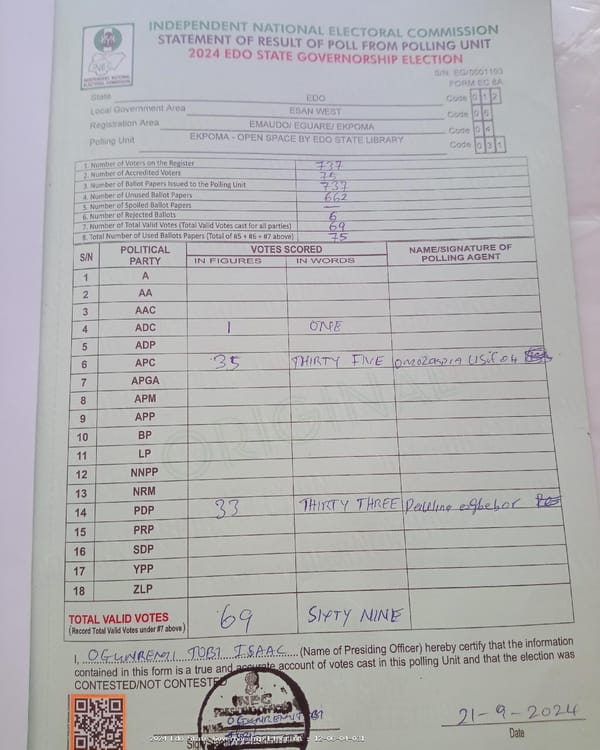 INDEPENDENT NATIONAL ELECTORAL COMMISSION
STATEMENT OF RESULT OF POLL FROM POLLING UNIT
2024 EDO STATE GOVERNORSHIP ELECTION
INDEPENDENT NATIONAL ELECTORAL COMMISSION
S/N: EG/0001193
FORM EC 8A
State EDO Code 0 1 2
Local Government Area ESAN WEST Code 0 6
Registration Area EMAUDO/ EGUARE/ EKPOMA Code 0 4
Polling Unit EKPOMA - OPEN SPACE BY EDO STATE LIBRARY Code 0 3 1
1. Number of Voters on the Register 737
2. Number of Accredited Voters 75
3. Number of Ballot Papers Issued to the Polling Unit 737
4. Number of Unused Ballot Papers 662
5. Number of Spoiled Ballot Papers —
6. Number of Rejected Ballots 6
7. Number of Total Valid Votes (Total Valid Votes cast for all parties) 69
8. Total Number of Used Ballots Papers (Total of #5 + #6 + #7 above) 75
S/N POLITICAL PARTY VOTES SCORED NAME/SIGNATURE OF POLLING AGENT
IN FIGURES IN WORDS
1 A
2 AA
3 AAC
4 ADC 1 ONE
5 ADP
6 APC 35 THIRTY FIVE
7 APGA
8 APM
9 APP
10 BP
11 LP
12 NNPP
13 NRM
14 PDP 33 THIRTY THREE
15 PRP
16 SDP
17 YPP
18 ZLP
ORIGINAL
TOTAL VALID VOTES 69 SIXTY NINE
(Record Total Valid Votes under #7 above)
I, OGUNREMI TOBI ISAAC (Name of Presiding Officer) hereby certify that the information
contained in this form is a true and accurate account of votes cast in this polling Unit and that the election was
CONTESTED/NOT CONTESTED
INEC
21-9-2024
Date